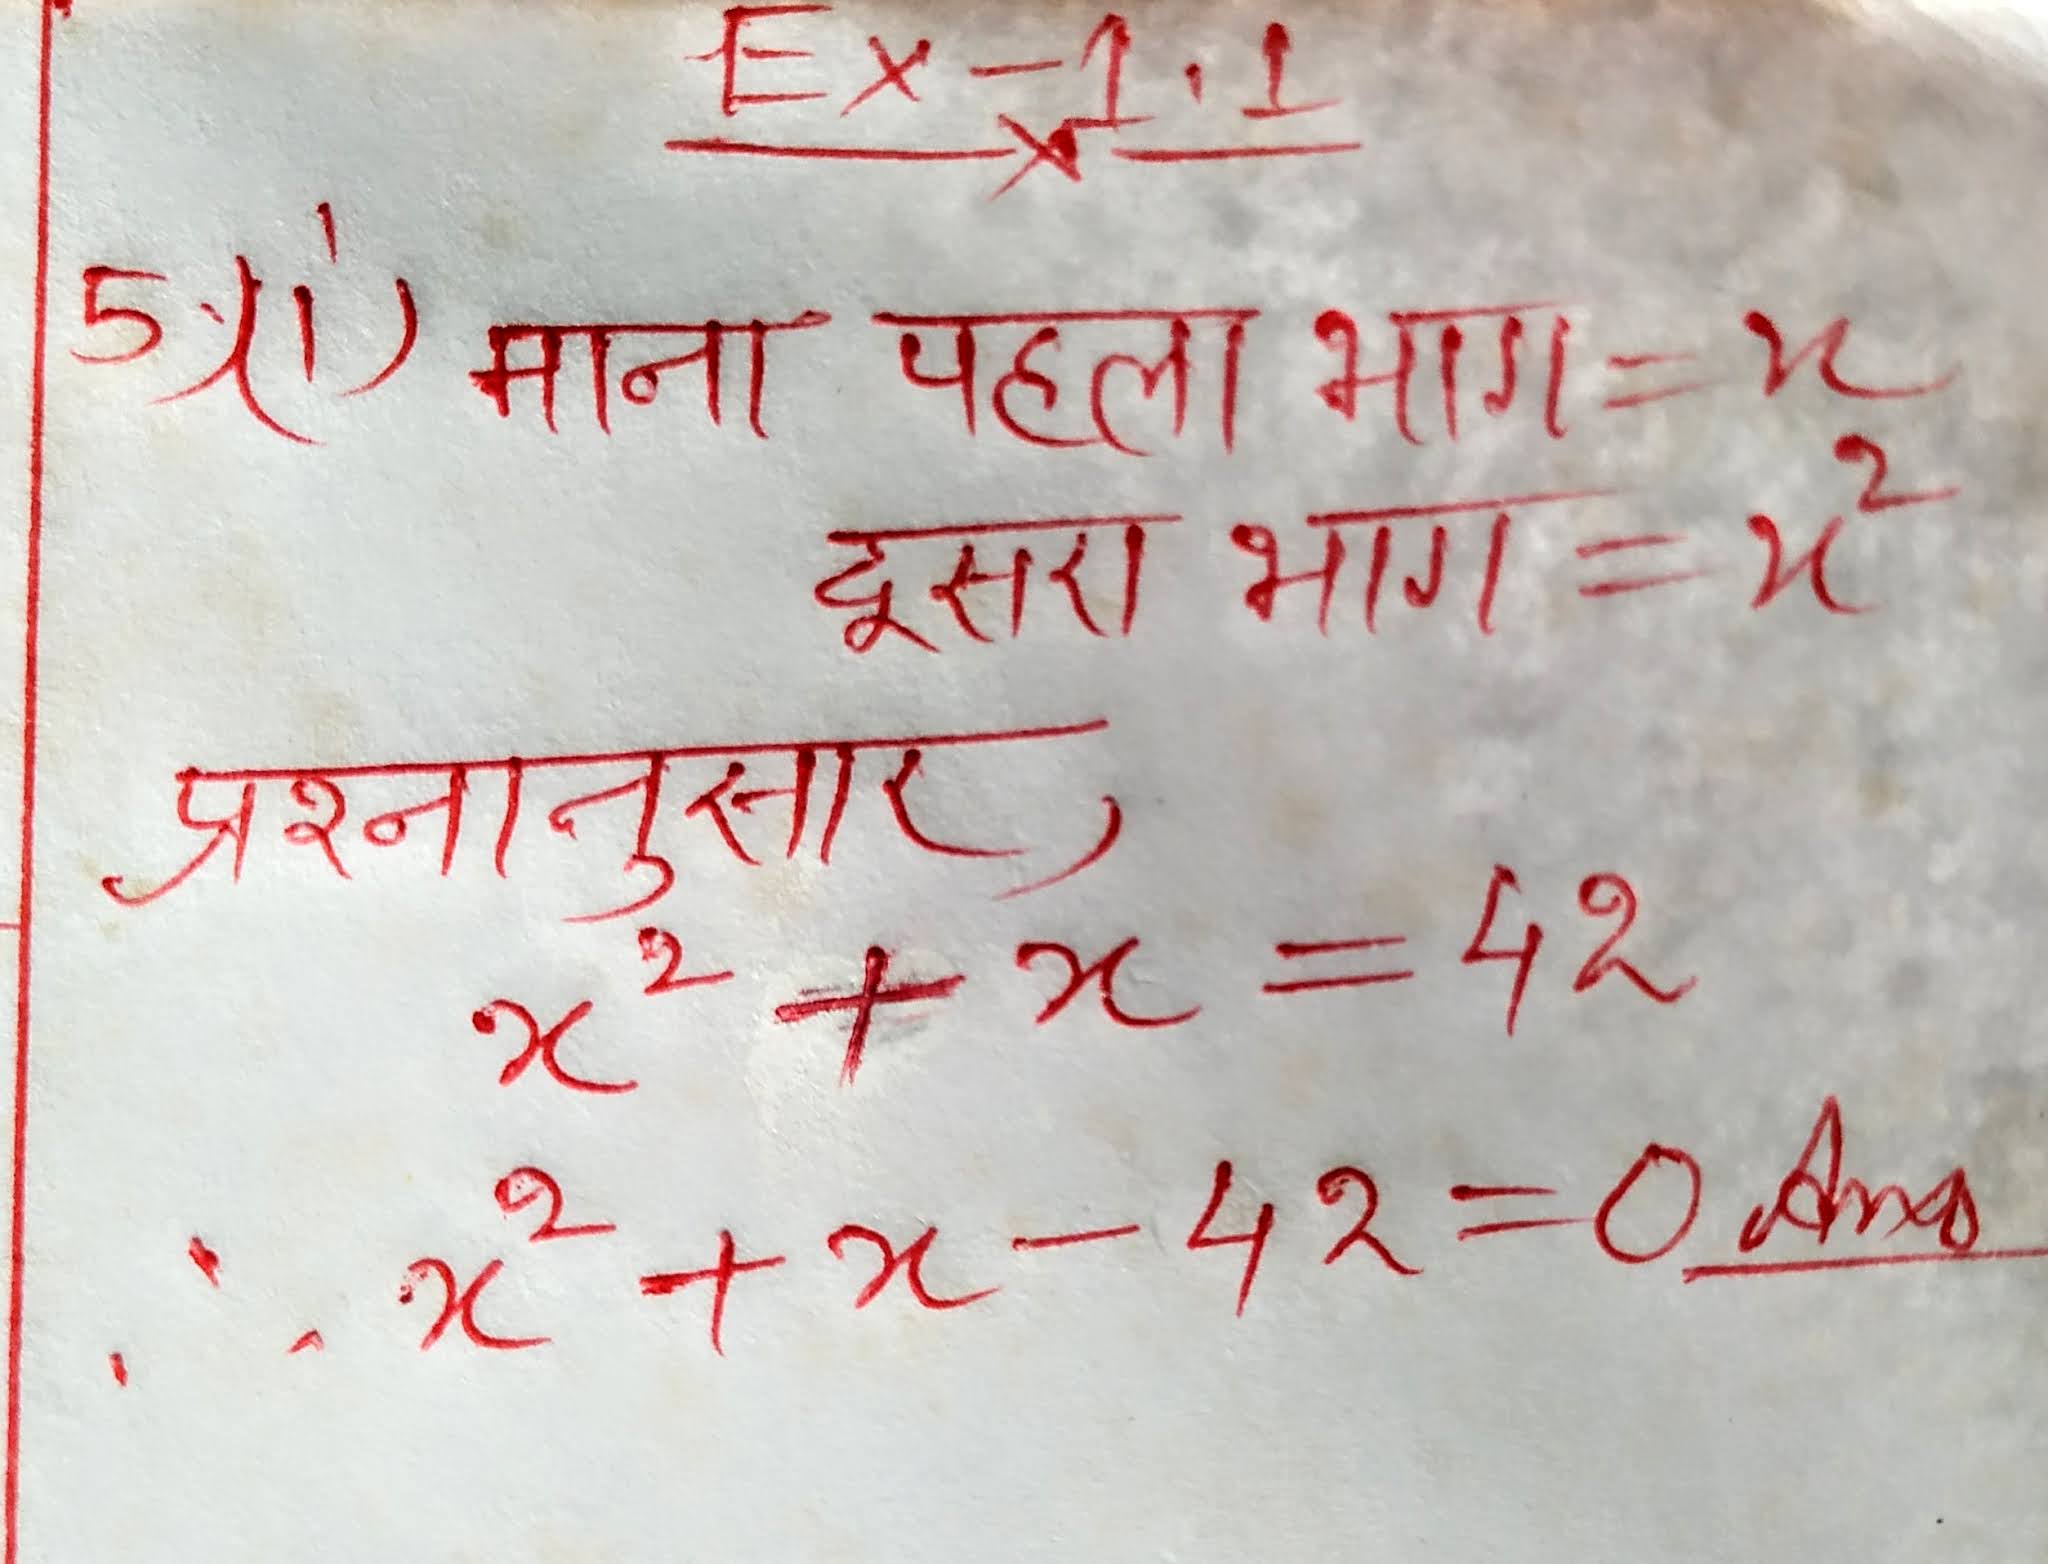 Ex-1.1
5.(i) माना पहला भाग = x
दूसरा भाग = x²
प्रश्नानुसार,
x² + x = 42
∴ x² + x - 42 = 0 Ans